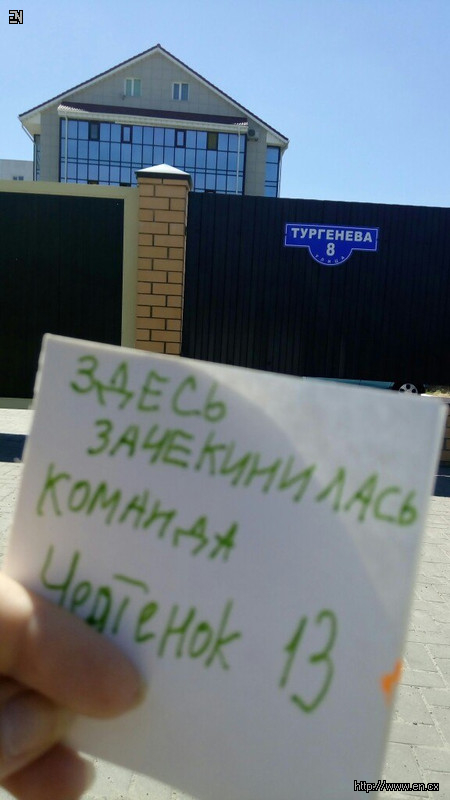 EN
ТУРГЕНЕВА
8
УЛИЦА
ЗДЕСЬ
ЗАЧЕКИНИЛАСЬ
КОМАНДА
Чертенок 13
http://www.en.cx